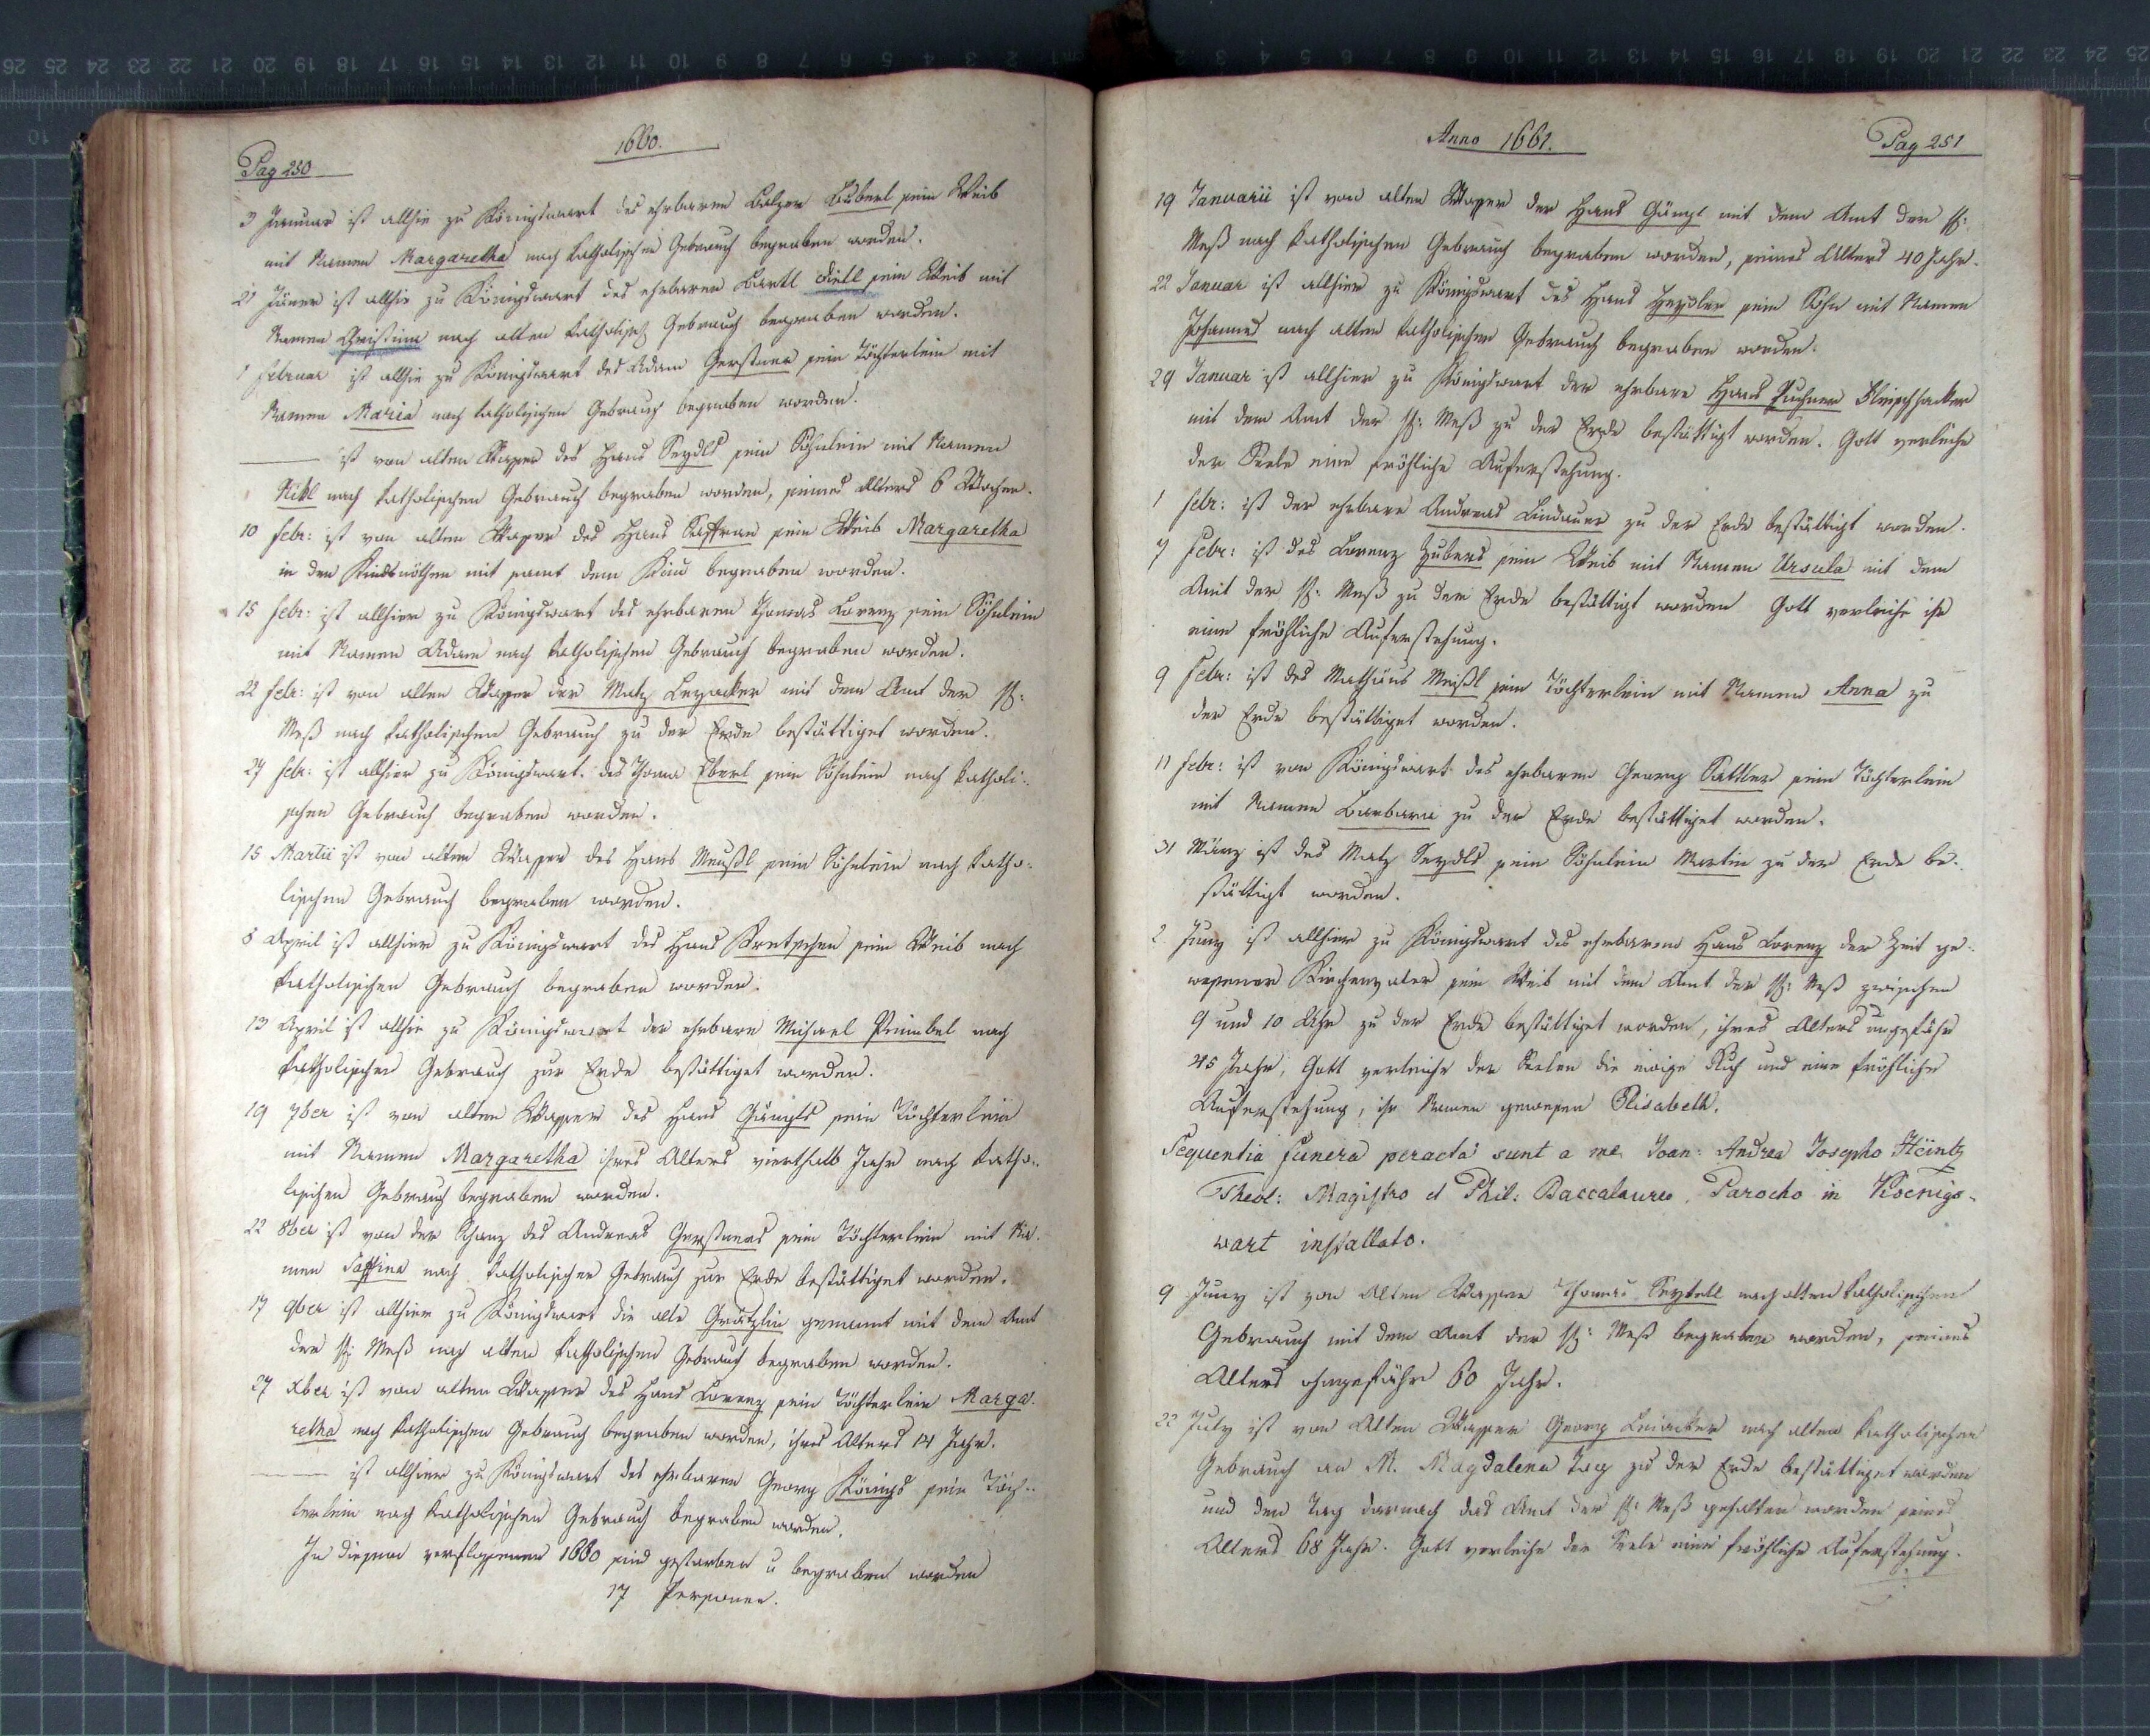 1660.
Pag 250
3 Januar ist allhie zu Königswart des ehrbaren Balzer Lüberl sein Weib
mit Namen Margaretha nach katholischen Gebrauch begraben worden.
21 Jäner ist allhie zu Königswart des ehrbaren Bartl Diell sein Weib mit
Namen Christina nach alten katholisch Gebrauch begraben worden.
1 Februar ist allhie zu Königswart des Adam Gerstner sein Töchterlein mit
Namen Maria nach katholischen Gebrauch begraben worden.
ist von alten Wasser des Hans Seydls sein Söhnlein mit Namen
Nikl nach katholischen Gebrauch begraben worden, seines Alters 6 Wochen.
10 Febr: ist von alten Wasser des Hans Saffran sein Weib Margaretha
in den Kindsnöthen mit samt dem Kind begraben worden.
15 Febr: ist allhier zu Königswart des ehrbaren Thomas Lorenz sein Söhnlein
mit Namen Adam nach katholischen Gebrauch begraben worden.
22 Febr: ist von alten Wasser der Matz Legacker mit dem Amt der H:
Meß nach katholischen Gebrauch zu der Erde bestättiget worden.
27 Febr: ist allhier zu Königswart des Thoma Eberl sein Söhnlein nach katholi-
schen Gebrauch begraben worden.
15 Martii ist von alten Wasser des Hans Meußl sein Söhnlein nach katho-
lischen Gebrauch begraben worden.
8 April ist allhier zu Königswart des Hans Kretschen sein Weib nach
katholischen Gebrauch begraben worden.
13 April ist allhie zu Königswart der ehrbare Michael Primbel nach
katholischen Gebrauch zur Erde bestättiget worden.
19 7ber ist von alten Wasser des Hans Gängls sein Töchterlein
mit Namen Margaretha ihres Alters vierthalb Jahr nach katho-
lischen Gebrauch begraben worden.
22 8ber ist von der Schanz des Andreas Gerstners sein Töchterlein mit Na-
men Saffina nach katholischen Gebrauch zur Erde bestättiget worden.
17 9ber ist allhier zu Königswart die alte Grätzlin genannt mit dem Amt
der H: Meß nach alten katholischen Gebrauch begraben worden.
27 Xber ist von alten Wasser des Hans Lorenz sein Töchterlein Marga-
retha nach katholischen Gebrauch begraben worden, ihres Alters 14 Jahr.
ist allhier zu Königswart des ehrbaren Georg Königs sein Töch-
terlein nach katholischen Gebrauch begraben worden.
In diesem verflossenen 1660 sind gestorben u begraben worden
17 Personen.
Anno 1661.
Pag 251
19 Januarii ist von alten Wasser der Hans Gängl mit dem Amt der H:
Meß nach katholischen Gebrauch begraben worden, seines Alters 40 Jahr.
22 Januar ist allhier zu Königswart des Hans Heydler sein Sohn mit Namen
Johannes nach alten katholischen Gebrauch begraben worden.
29 Januar ist allhier zu Königswart der ehrbare Hans Puchner Fleischhacker
mit dem Amt der H: Meß zu der Erde bestättigt worden. Gott verleihe
der Seele eine fröhliche Auferstehung.
1 Febr: ist der ehrbare Andreas Lindauer zu der Erde bestättigt worden.
7 Febr: ist des Lorenz Hubers sein Weib mit Namen Ursula mit dem
Amt der H: Meß zu der Erde bestättigt worden Gott verleihe ihr
eine fröhliche Auferstehung.
9 Febr: ist des Mathäus Meißl sein Töchterlein mit Namen Anna zu
der Erde bestättiget worden.
11 Febr: ist von Königswart des ehrbaren Georg Sattler sein Töchterlein
mit Namen Barbara zu der Erde bestättiget worden.
31 März ist des Matz Seydls sein Söhnlein Martin zu der Erde be-
stättigt worden.
2 Juny ist allhier zu Königswart des ehrbaren Hans Lorenz der Zeit ge-
wesener Kirchenvater sein Weib mit dem Amt der H: Meß zwischen
9 und 10 Uhr zu der Erde bestättiget worden, ihres Alters ungefähr
45 Jahr, Gott verleihe der Seelen die ewige Ruh und eine fröhliche
Auferstehung, ihr Namen gewesen Elisabeth.
Sequentia Funera peracta sunt a me Joan: Andrea Josepho Heintz
Theol: Magistro et Phil: Baccalaureo, Parocho in Koenigs-
wart installato.
9 Juny ist von Alten Wasser Thomas Seytell nach alten katholischen
Gebrauch mit dem Amt der H: Meß begraben worden, seines
Alters ohngefähr 60 Jahr.
22 July ist von Alten Wasser Georg Leiacker nach alten katholischen
Gebrauch an M. Magdalena Tag zu der Erde bestättiget worden
und den Tag darnach das Amt der H: Meß gehalten worden seines
Alters 68 Jahr. Gott verleihe der Seele eine fröhliche Auferstehung.